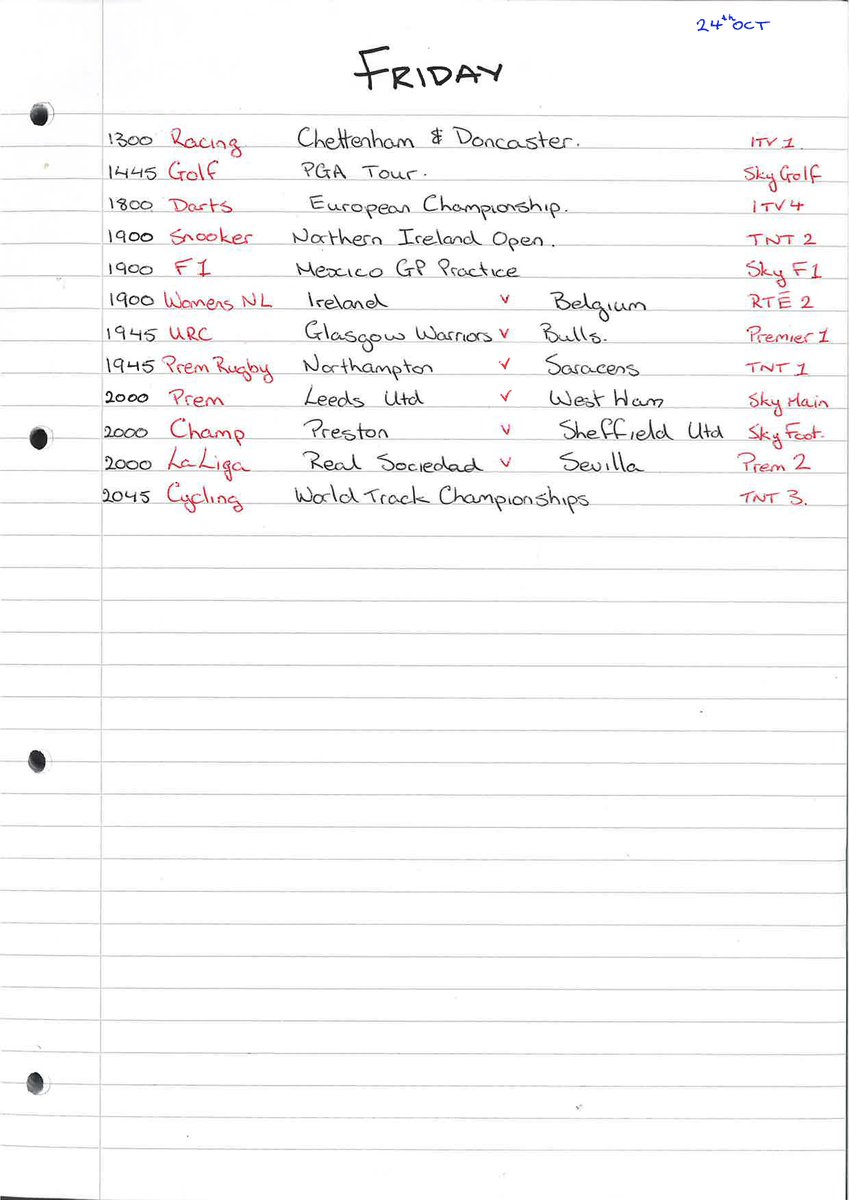 24th OCT
FRIDAY
1300 Racing Cheltenham & Doncaster. ITV 1.
1445 Golf PGA Tour. Sky Golf
1800 Darts European Championship. ITV 4
1900 Snooker Northern Ireland Open. TNT 2
1900 F1 Mexico GP Practice Sky F1
1900 Womens NL Ireland v Belgium RTÉ 2
1945 URC Glasgow Warriors v Bulls. Premier 1
1945 Prem Rugby Northampton v Saracens TNT 1
2000 Prem Leeds Utd v West Ham Sky Main
2000 Champ Preston v Sheffield Utd Sky Foot.
2000 La Liga Real Sociedad v Sevilla Prem 2
2045 Cycling World Track Championships TNT 3.